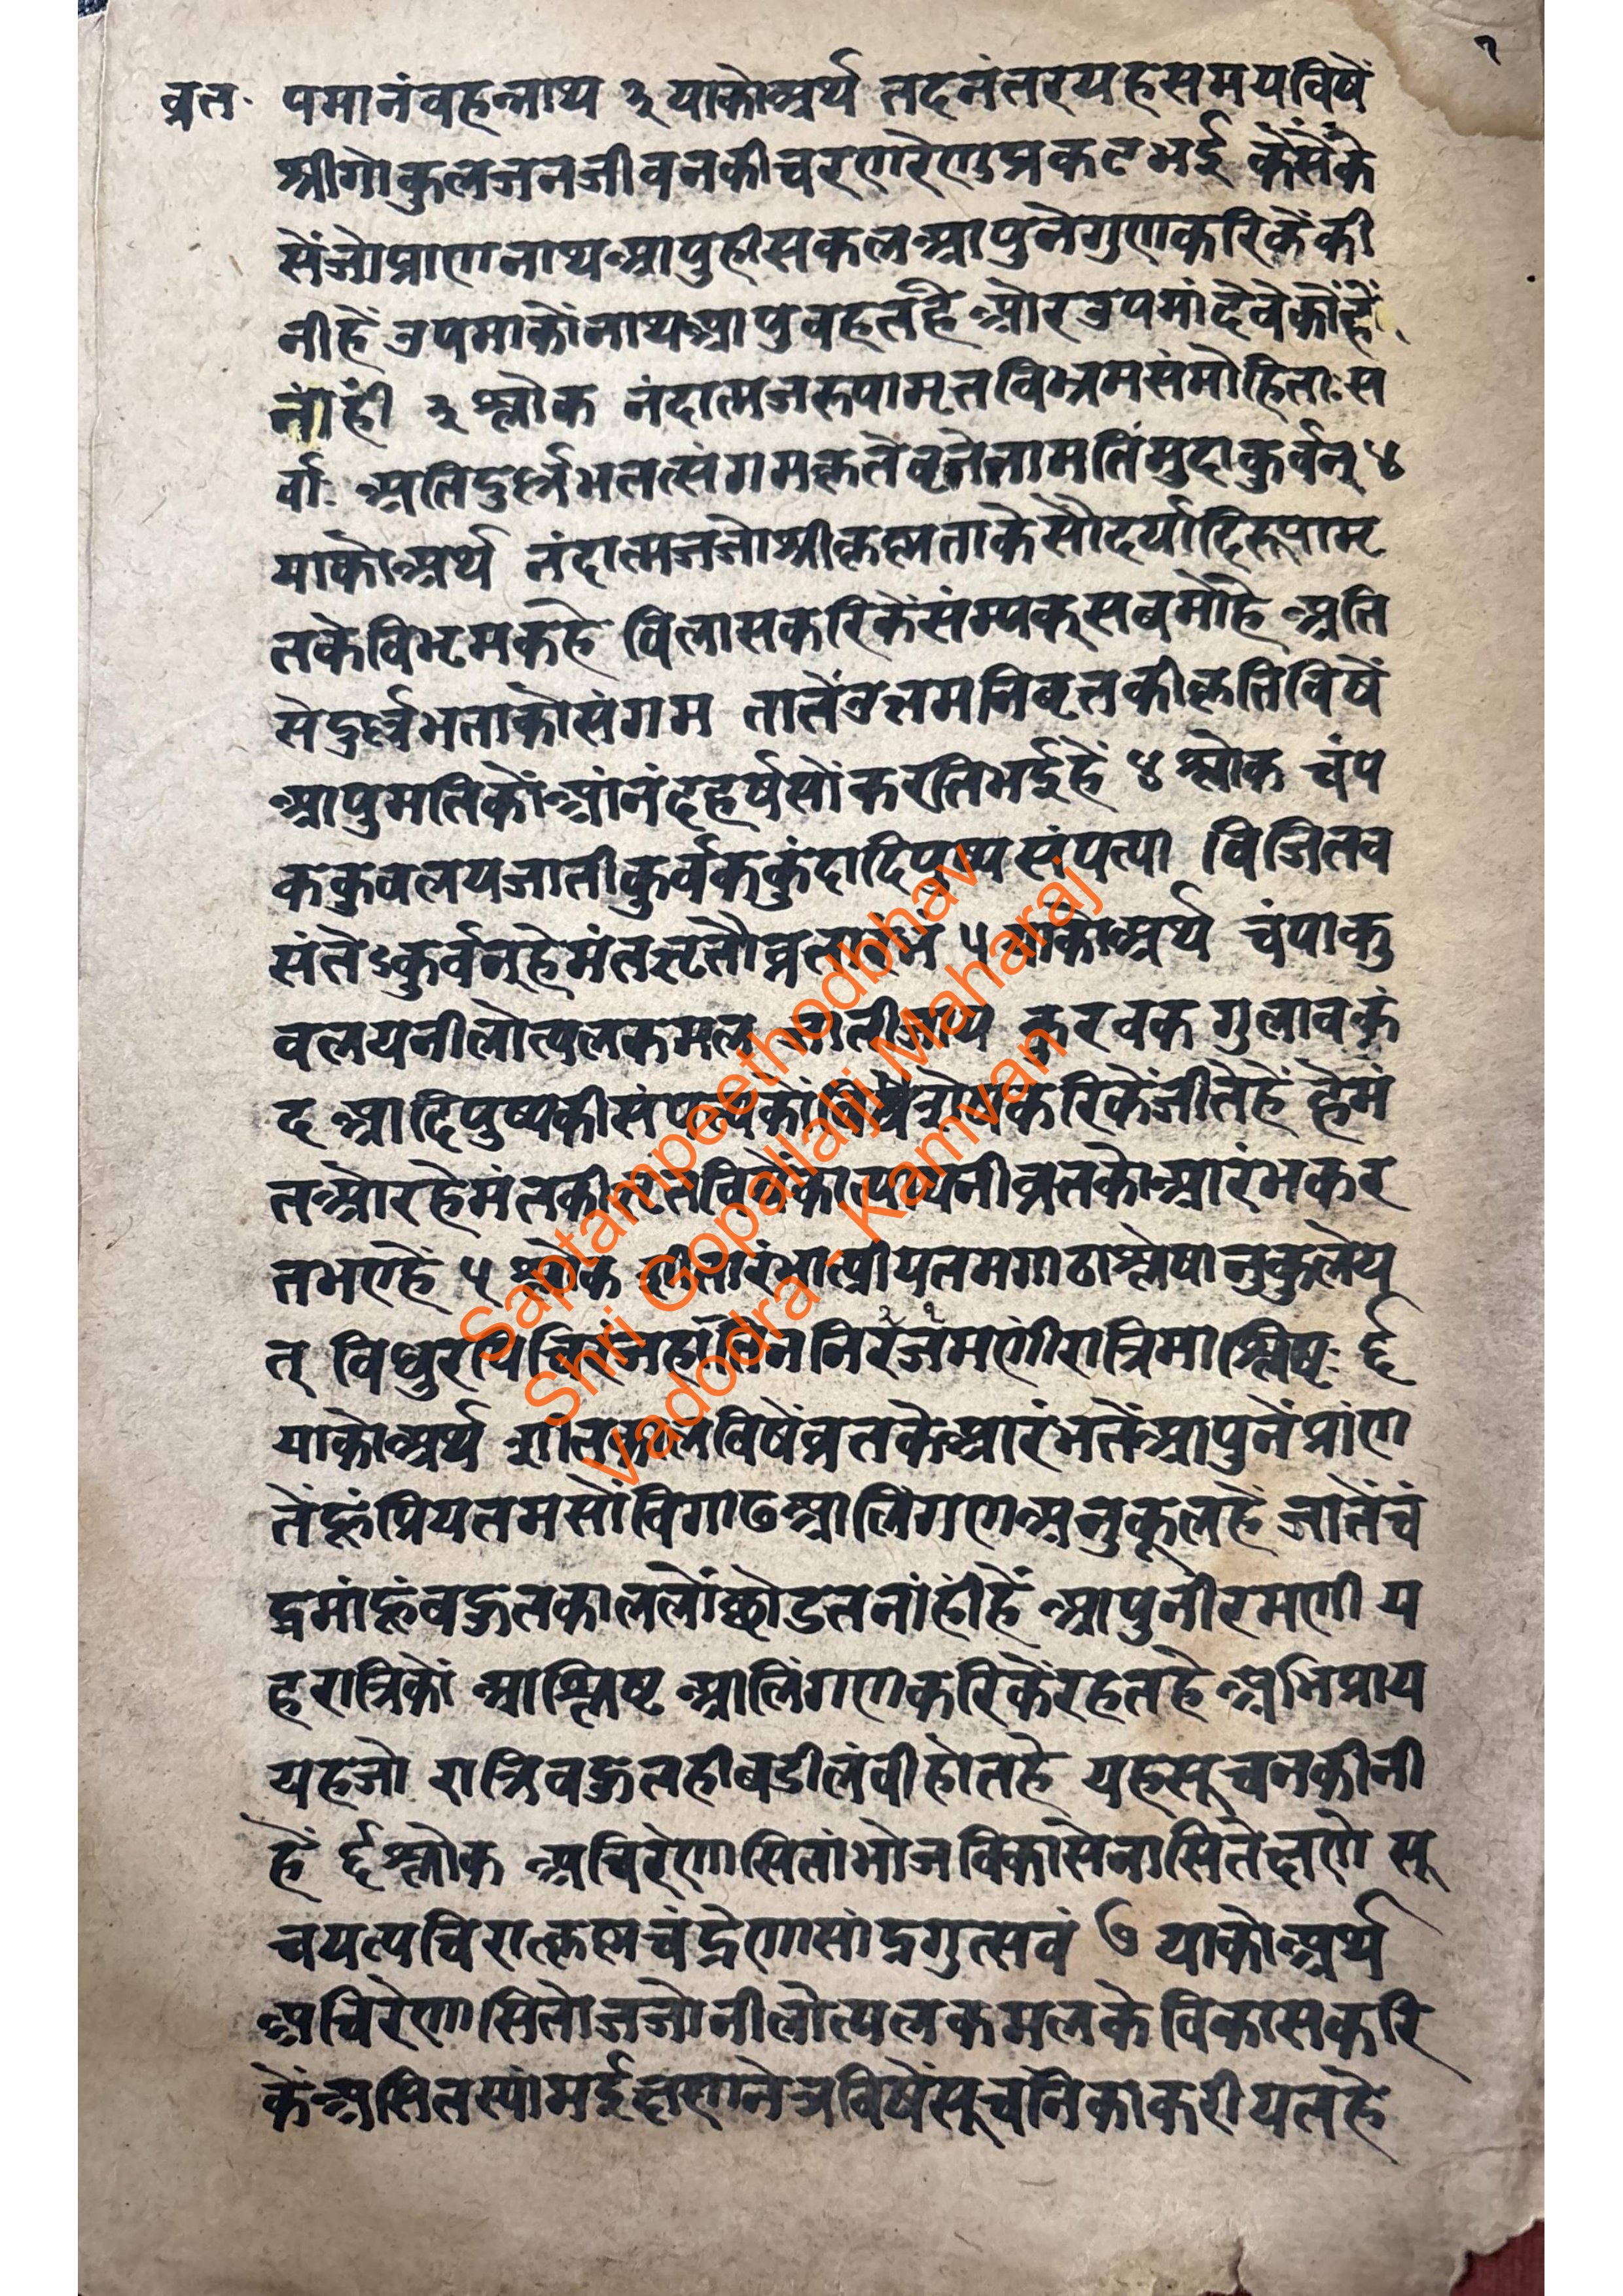 १
व्रत. पमानंवहन्नाथ ३ याकोअर्थ तदनंतरयहसमयविषें
श्रीगोकुलजनजीवनकीचरणरेणुप्रकटभई कैसेंके
सेंजोप्राणनाथआपुहीसकलआपुनेगुणकरिकेंकी
नीहें उपमाकोंनाथआपुवहतहै ओरउपमांदेवेकोंहें
नांहीं ३ श्लोक नंदात्मजरुपामृतविभ्रमसंमोहिताःस
र्वाः अतिदुर्ल्लभतत्संगमकृतेवृत्तेनामतिंमुदाकुर्वन् ४
याकोअर्थ नंदात्मजजोश्रीकृष्णताकेसौदर्यादिरूपामृ
तकेविभ्रमकहे विलासकरिकेंसंम्पक्सबमोहे अति
सेदुर्ल्लभताकोसंगम तातेंउत्तमनिवृत्तकीकृतिविषें
आपुमतिकोंआंनंदहर्षसोंकरतिभईहें ४ श्लोक चंप
ककुवलयजातीकुर्वक्कुंदादिपुष्पसंपत्या विजितव
संतेऽकुर्वन्हेमंतऋतौव्रतारंभं ५ याकोअर्थ चंपाकु
वलयनीलोत्पलकमल जातीजाय कुरवक गुलावकुं
द आदिपुष्पकीसंपत्यकों करिकेंजीतेहें हेमं
तओरहेमंतकीऋतविषेंकात्यायनीव्रतकोआरंभकर
तभएहें ५ श्लोक शीतारंभात्प्रीयतमगाढाश्लेषानुकुलेय
त् विधुरपिचिरंजहातिननिरंजमणींरात्रिमाश्लिष्टः ६
याकोअर्थ शीतकालविषेंव्रतकेआरंभतेंआपुनेंप्रांण
तेंहूंप्रियतमसोंविगाढआलिंगणअनुकूलहे जातेंचं
द्रमांहूंवहुतकाललोंछोडतनांहींहें आपुनीरमणी य
हरात्रिकों आश्लिष्ट आलिंगणकरिकेंरहतहे अभिप्राय
यहजो रात्रिवहुतहीबडीलंवीहोतहे यहसूचनकीनी
हें ६ श्लोक अचिरेणासितांभोजविकासेनासितेक्षणे सू
चयत्पचिरात्कृष्णचंद्रेणसांद्रगुत्सवं ७ याकोअर्थ
अचिरेणसितोजजोनीलोत्पलकमलके विकासकरि
केंअसितस्यांमईक्षणनेत्रविषेंसूचनिकाकरीयतहे
Saptampeethodbhav
Shri Gopallalji Maharaj
Vadodra - Kamvan